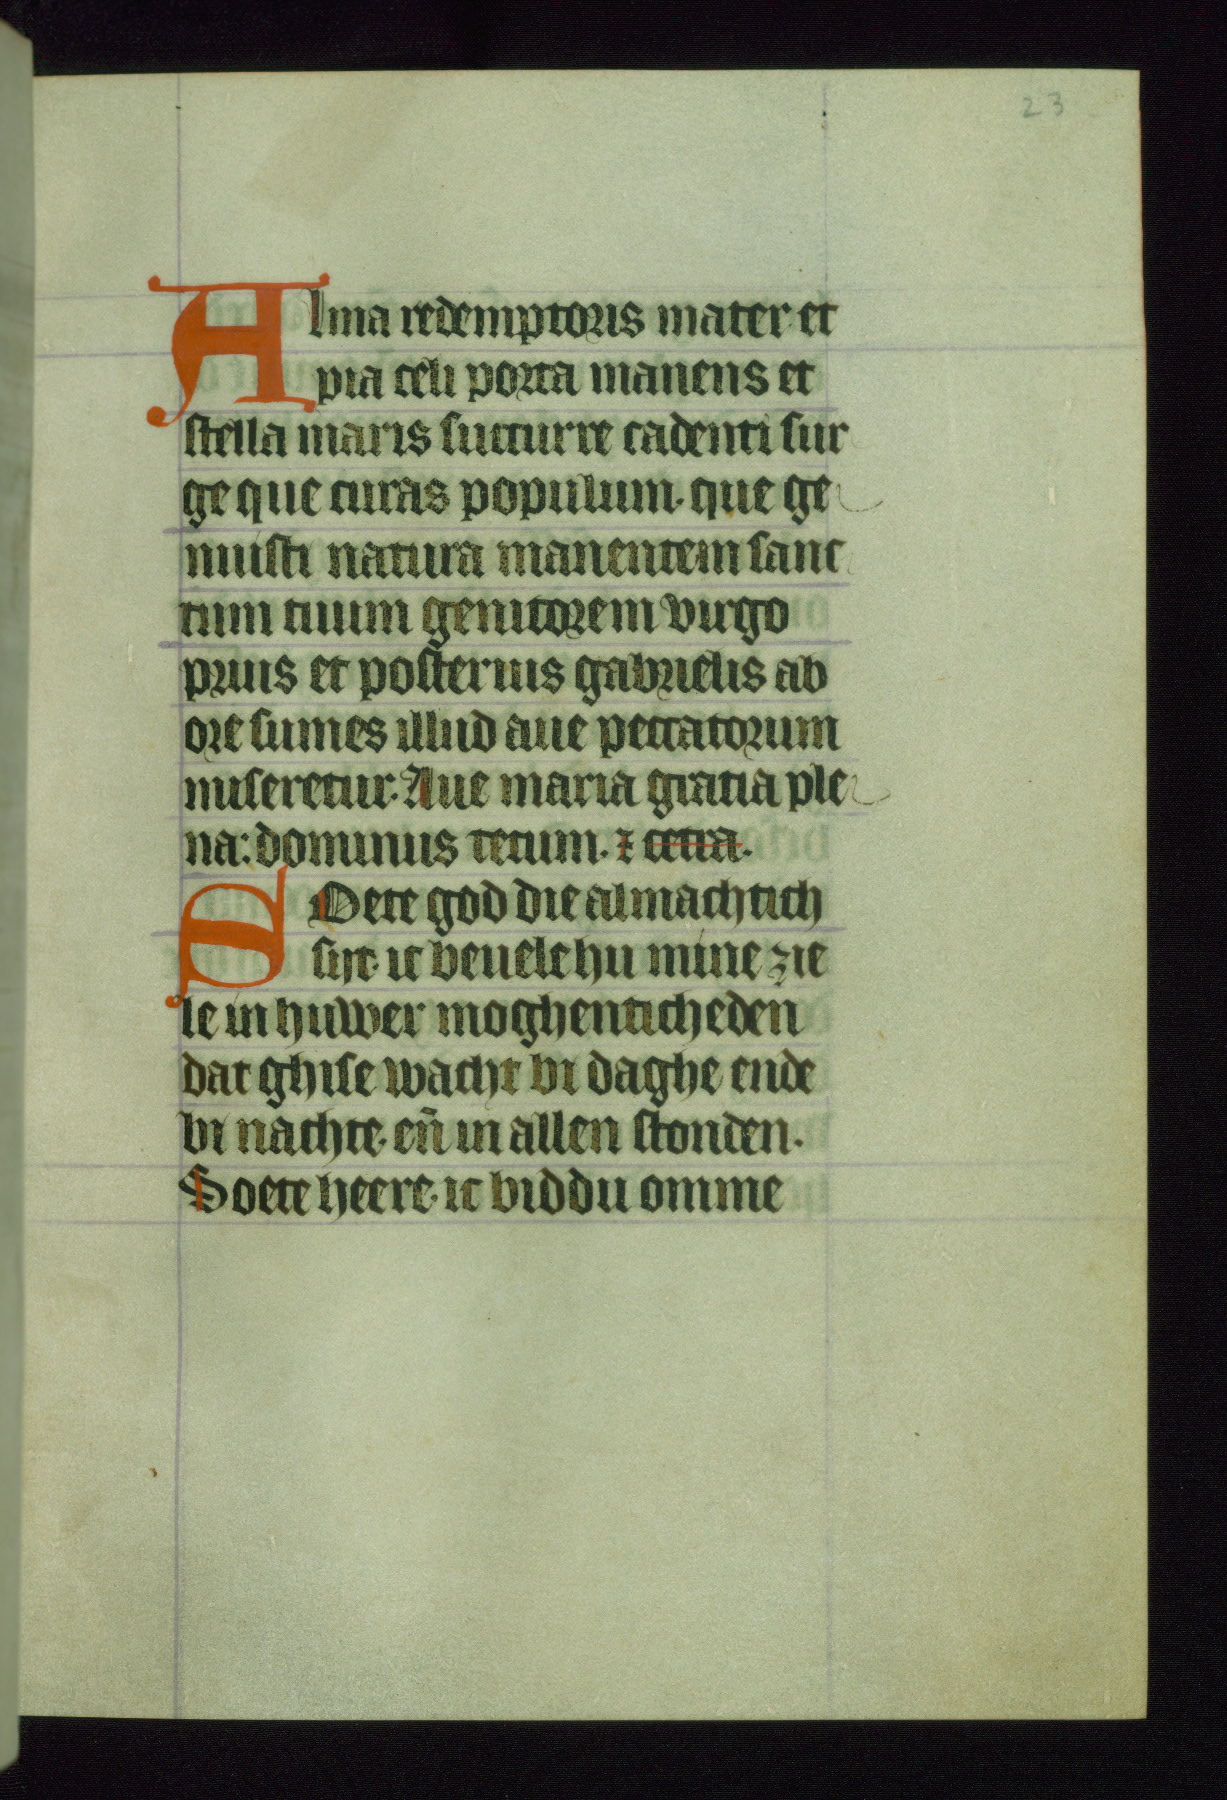 23
Alma redemptoris mater et
pia celi porta manens et
stella maris succurre cadenti sur
ge que curas populum· que ge
nuisti natura manentem sanc
tum tuum genitorem virgo
prius et posterius gabrielis ab
ore sumes illud aue peccatorum
miseretur· Aue maria gratia ple
na: dominus tecum· ⁊ cetra·
SOete god die almachtich
sijt· ic beuele hu mine zie
le in huwer moghenticheden
dat ghise wacht bi daghe ende
bi nachte· en̄ in allen stonden·
Soete heere· ic biddu omme